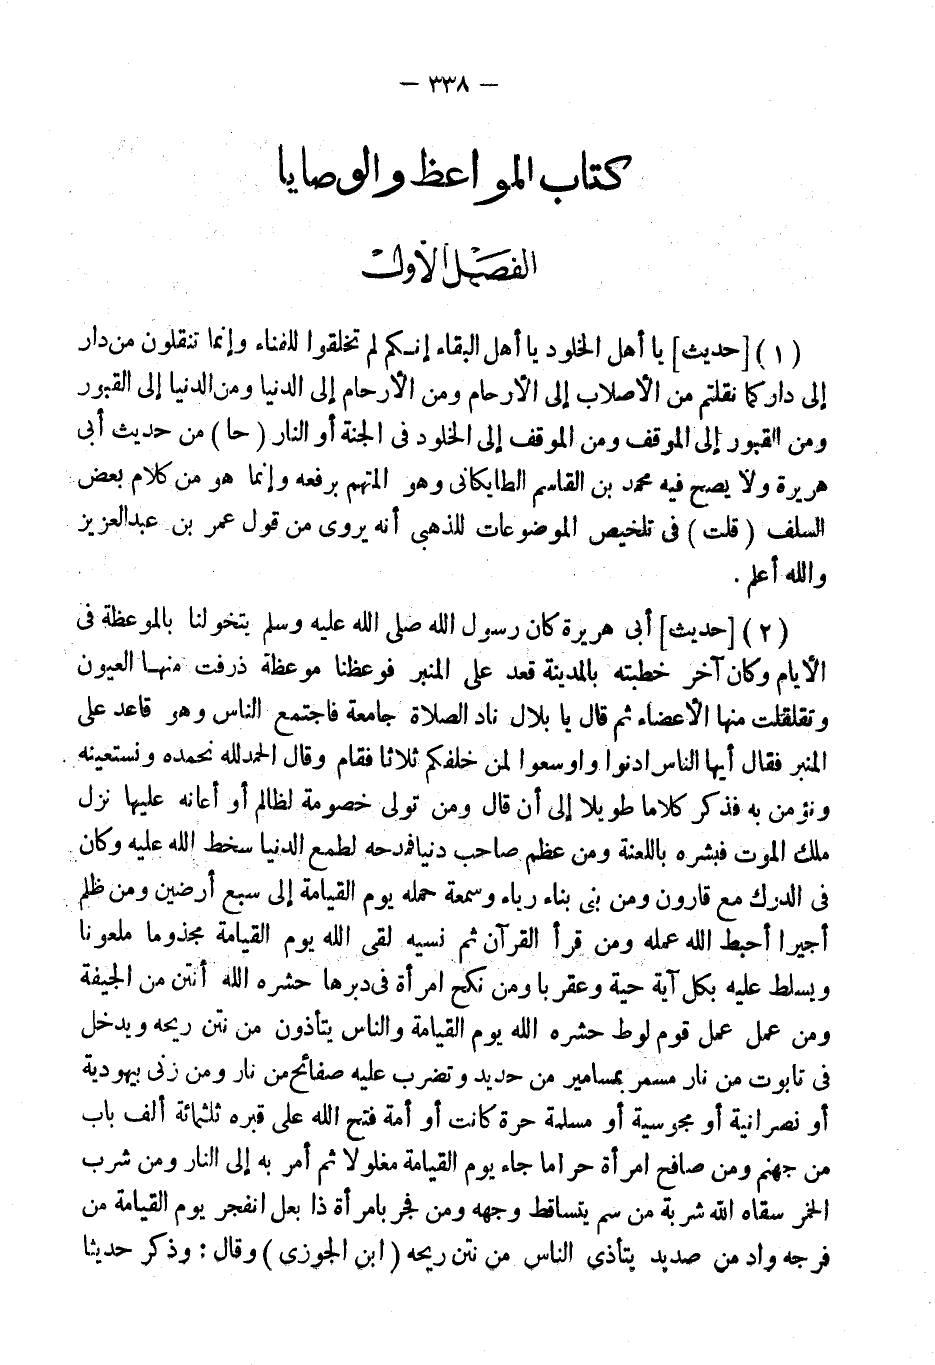 — ٣٣٨ —
كتاب المواعظ والوصايا
الفصل الأول
( ١ ) [حديث] يا أهل الخلود يا أهل البقاء إنكم لم تخلقوا للفناء وإنما تنقلون من دار
إلى دار كما نقلتم من الأصلاب إلى الأرحام ومن الأرحام إلى الدنيا ومن الدنيا إلى القبور
ومن القبور إلى الموقف ومن الموقف إلى الخلود فى الجنة أو النار ( حا ) من حديث أبى
هريرة ولا يصح فيه محمد بن القاسم الطايكانى وهو المتهم برفعه وإنما هو من كلام بعض
السلف ( قلت ) فى تلخيص الموضوعات للذهبي أنه يروى من قول عمر بن عبدالعزيز
والله أعلم .
( ٢ ) [حديث] أبى هريرة كان رسول الله صلى الله عليه وسلم يتخولنا بالموعظة فى
الأيام وكان آخر خطبته بالمدينة قعد على المنبر فوعظنا موعظة ذرفت منها العيون
وتقلقلت منها الأعضاء ثم قال يا بلال ناد الصلاة جامعة فاجتمع الناس وهو قاعد على
المنبر فقال أيها الناس ادنوا واوسعوا لمن خلفكم ثلاثا فقام وقال الحمدلله نحمده ونستعينه
ونؤمن به فذكر كلاما طويلا إلى أن قال ومن تولى خصومة لظالم أو أعانه عليها نزل
ملك الموت فبشره باللعنة ومن عظم صاحب دنيا فمدحه لطمع الدنيا سخط الله عليه وكان
فى الدرك مع قارون ومن بنى بناء رياء وسمعة حمله يوم القيامة إلى سبع أرضين ومن ظلم
أجيرا أحبط الله عمله ومن قرأ القرآن ثم نسيه لقى الله يوم القيامة مجذوما ملعونا
ويسلط عليه بكل آية حية وعقربا ومن نكح امرأة فى دبرها حشره الله أنتن من الجيفة
ومن عمل عمل قوم لوط حشره الله يوم القيامة والناس يتأذون من نتن ريحه ويدخل
فى تابوت من نار مسمر بمسامير من حديد وتضرب عليه صفائح من نار ومن زنى بيهودية
أو نصرانية أو مجوسية أو مسلمة حرة كانت أو أمة فتح الله على قبره ثلثمائة ألف باب
من جهنم ومن صافح امرأة حراما جاء يوم القيامة مغلولا ثم أمر به إلى النار ومن شرب
الخمر سقاه الله شربة من سم يتساقط وجهه ومن فجر بامرأة ذا بعل انفجر يوم القيامة من
فرجه واد من صديد يتأذى الناس من نتن ريحه ( ابن الجوزى ) وقال : وذكر حديثا